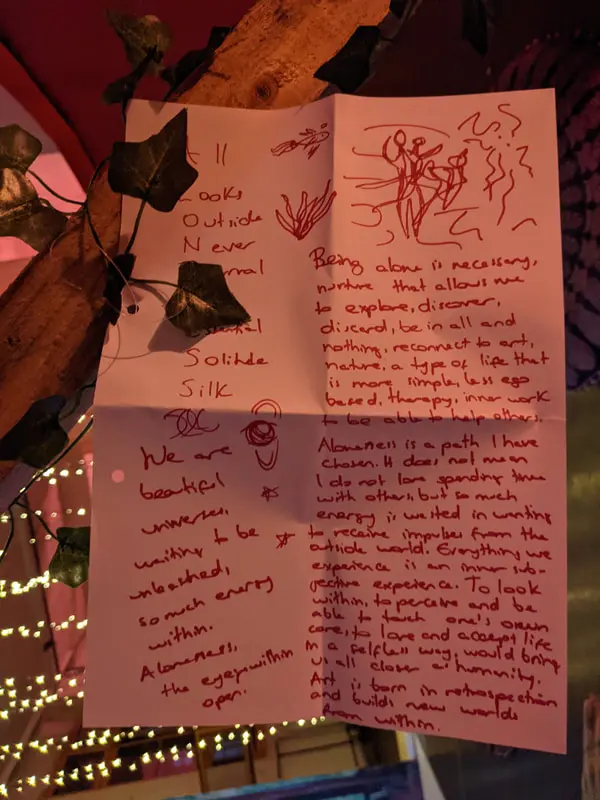 Looks
Outside
Never
Solitude
Silk
We are
beautiful
universes,
waiting to be
unleashed,
so much energy
within.
Aloneness,
the eyes within
open.
Being alone is necessary,
nurture that allows me
to explore, discover,
discard, be in all and
nothing, reconnect to art,
nature, a type of life that
is more simple, less ego
based, therapy, inner work
to be able to help others.
Aloneness is a path I have
chosen. It does not mean
I do not love spending time
with others, but so much
energy is wasted in wanting
to receive impulses from the
outside world. Everything we
experience is an inner sub-
jective experience. To look
within, to perceive and be
able to touch one's own
core, to love and accept life
in a selfless way, would bring
us all closer a humanity.
Art is born in retrospection
and builds new worlds
from within.